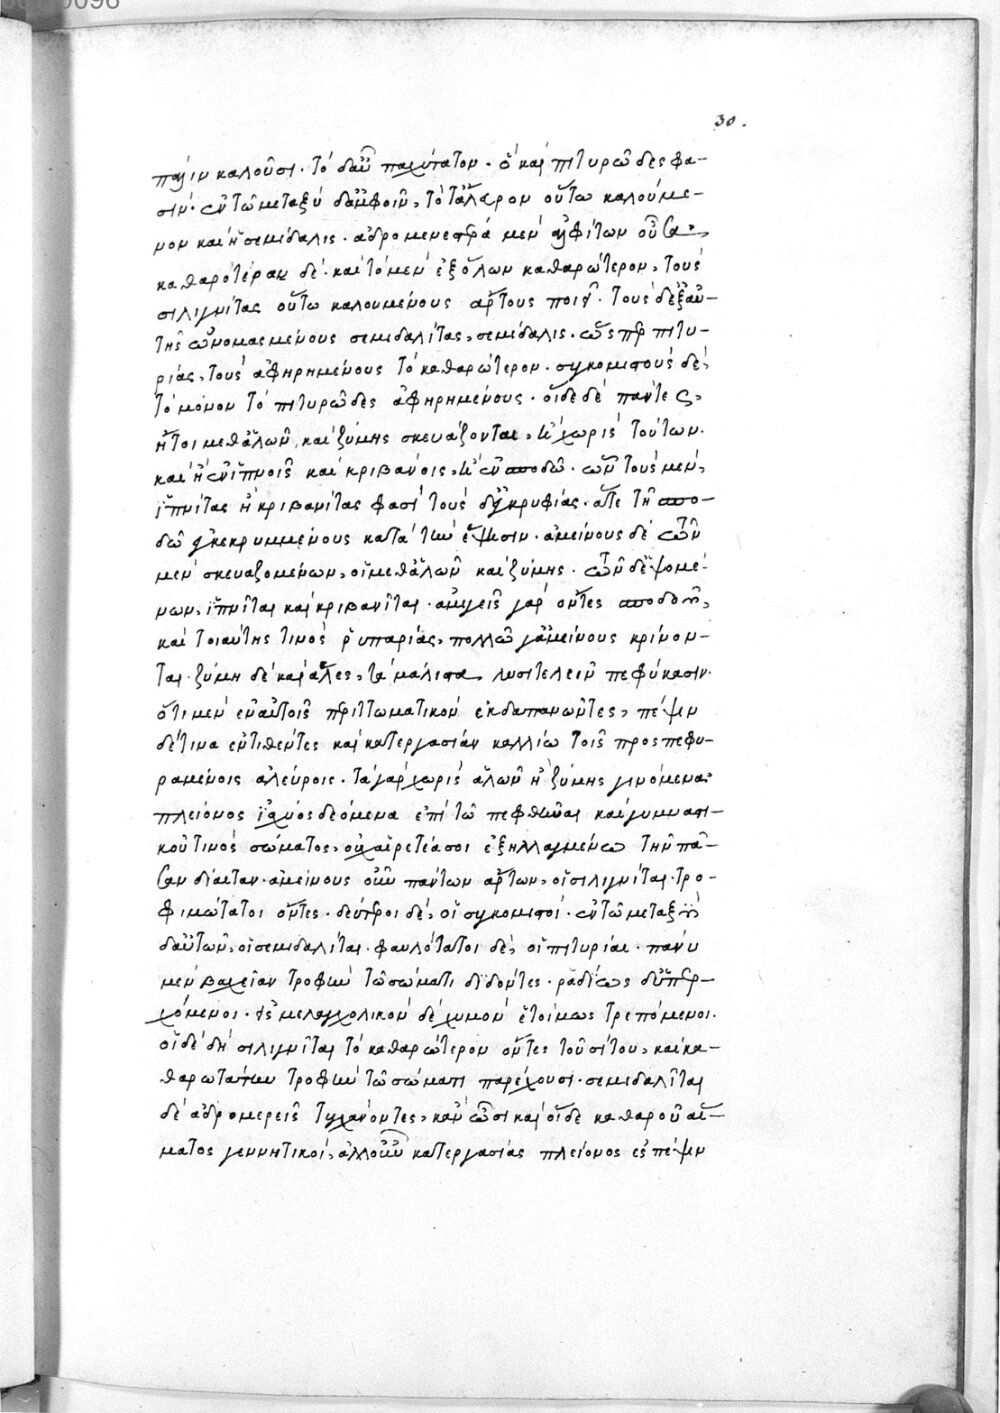 30.
πάλιν καλοῦσι· τὸ δ' αὖ παχύτατον· ὃ καὶ πιτυρῶδες φα-
σίν· ἐν τῷ μεταξὺ δ' ἀμφοῖν, τό τ' ἄλευρον οὕτω καλούμε-
νον καὶ ἡ σεμίδαλις· ἁδρομερεστέρα μὲν ἀλφίτων οὖσα,
καθαρωτέρα δέ· καὶ τὸ μὲν ἐξ ὅλων καθαρώτερον, τοὺς
σιλιγνίτας οὕτω καλουμένους ἄρτους ποιεῖ· τοὺς δ' ἐξ αὐ-
τῆς ὠνομασμένους σεμιδαλίτας, σεμίδαλις· ὥσπερ πιτυ-
ρίας, τοὺς ἀφῃρημένους τὸ καθαρώτερον· συγκομιστοὺς δὲ,
τὸ μόνον τὸ πιτυρῶδες ἀφῃρημένους· οἵδε δὲ πάντες,
ἤτοι μεθ' ἁλῶν καὶ ζύμης σκευάζονται, ἢ χωρὶς τούτων.
καὶ ἢ ἐν ἰπνοῖς καὶ κριβάνοις, ἢ ἐν σποδῷ· ὧν τοὺς μὲν,
ἰπνίτας ἢ κριβανίτας φασὶ τοὺς δ' ἐγκρυφίας· ἅτε τῇ σπο-
δῷ ἐγκεκρυμμένους κατὰ τὴν ἕψησιν· ἀμείνους δὲ ὧν
μὲν σκευαζομένων, οἱ μεθ' ἁλῶν καὶ ζύμης· ὧν δ' ἑψομέ-
νων, ἰπνῖται καὶ κριβανῖται· ἀμιγεῖς γὰρ ὄντες σποδοῦ,
καὶ τοιαύτης τινὸς ῥυπαρίας, πολλῷ γ' ἀμείνους κρίνον-
ται· ζύμη δὲ καὶ ἅλες, τὰ μάλιστα λυσιτελεῖν πεφύκασιν·
ὅτι μὲν ἐν αὐτοῖς περιττωματικὸν ἐκδαπανῶντες, πέψιν
δέ τινα ἐντιθέντες καὶ κατεργασίαν καλλίω τοῖς προσπεφυ-
ραμένοις ἀλεύροις· τὰ γὰρ χωρὶς ἁλῶν ἢ ζύμης γινόμενα·
πλείονος ἰσχύος δεόμενα ἐπὶ τῷ πεφθῆναι καὶ γυμναστι-
κοῦ τινὸς σώματος, οὐχ αἱρετέα σοι ἐξηλλαγμένῳ τὴν πᾶ-
σαν δίαιταν· ἀμείνους οὖν πάντων ἄρτων, οἱ σιλιγνῖται· τρο-
φιμώτατοι ὄντες· δεύτεροι δὲ, οἱ συγκομιστοί· ἐν τῷ μεταξὺ
δ' αὐτῶν, οἱ σεμιδαλῖται· φαυλότατοι δὲ, οἱ πιτυρίαι· πάνυ
μὲν βραχεῖαν τροφὴν τῷ σώματι διδόντες· ῥᾳδίως δ' ὑπερ-
χόμενοι· εἰς μελαγχολικὸν δὲ χυμὸν ἑτοίμως τρεπόμενοι.
οἱ δὲ δὴ σιλιγνῖται τὸ καθαρώτερον ὄντες τοῦ σίτου, καὶ κα-
θαρωτάτην τροφὴν τῷ σώματι παρέχουσι· σεμιδαλῖται
δὲ ἁδρομερεῖς τυγχάνοντες, κἂν ὦσι καὶ οἵδε καθαροῦ αἵ-
ματος γεννητικοί, ἀλλ' οὖν κατεργασίας πλείονος ἐς πέψιν